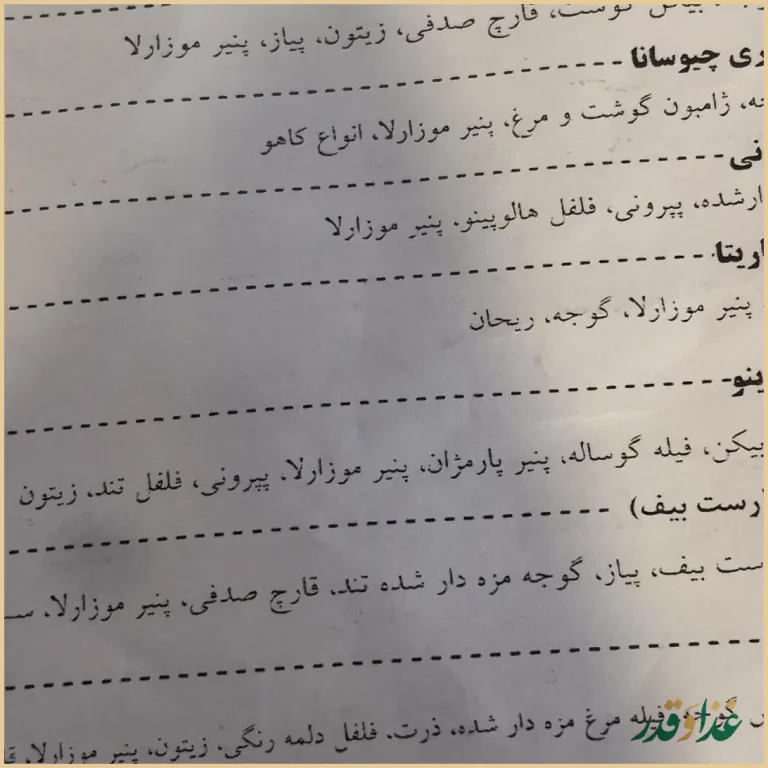 گوشت، قارچ صدفی، زیتون، پیاز، پنیر موزارلا
چیوسانا
ژامبون گوشت و مرغ، پنیر موزارلا، انواع کاهو
پپرونی، فلفل هالوپینو، پنیر موزارلا
پنیر موزارلا، گوجه، ریحان
بیکن، فیله گوساله، پنیر پارمژان، پنیر موزارلا، پپرونی، فلفل تند، زیتون
بیف)
بیف، پیاز، گوجه مزه دار شده تند، قارچ صدفی، پنیر موزارلا،
فیله مرغ مزه دار شده، ذرت، فلفل دلمه رنگی، زیتون، پنیر موزارلا،
غذا و قدر